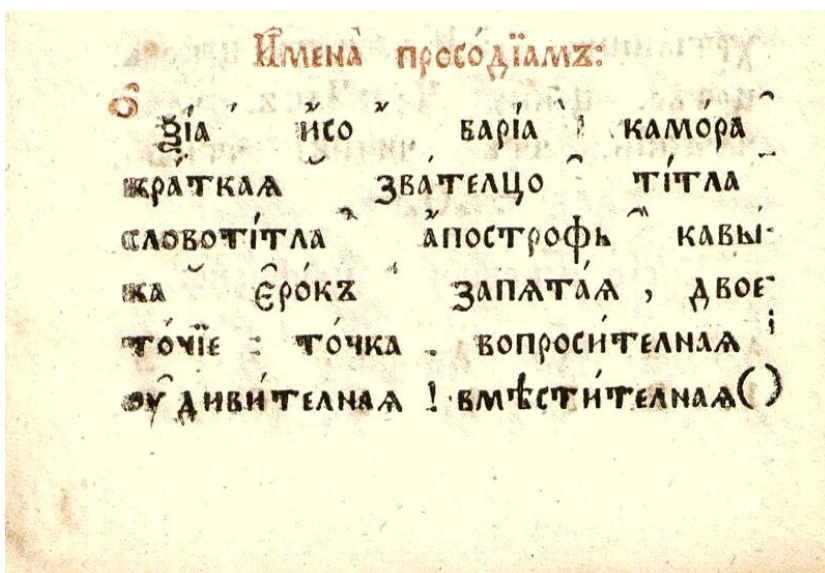 И҆мена̀ просѡ́дїамъ:
Ѻ҆ѯі́а ́ и҆́со ҆́ варі́а ̀ камо́ра ̑
кра́ткаѧ ̆ зва́телцо ҆ ті́тла ҃
словоті́тла а҆́построфь ҆̀ кавы́-
ка є҆ро́къ запѧта́ѧ , двое-
то́чїе : то́чка . вопроси́телнаѧ ;
ᲂу҆диви́телнаѧ ! вмѣсти́телнаѧ ( )